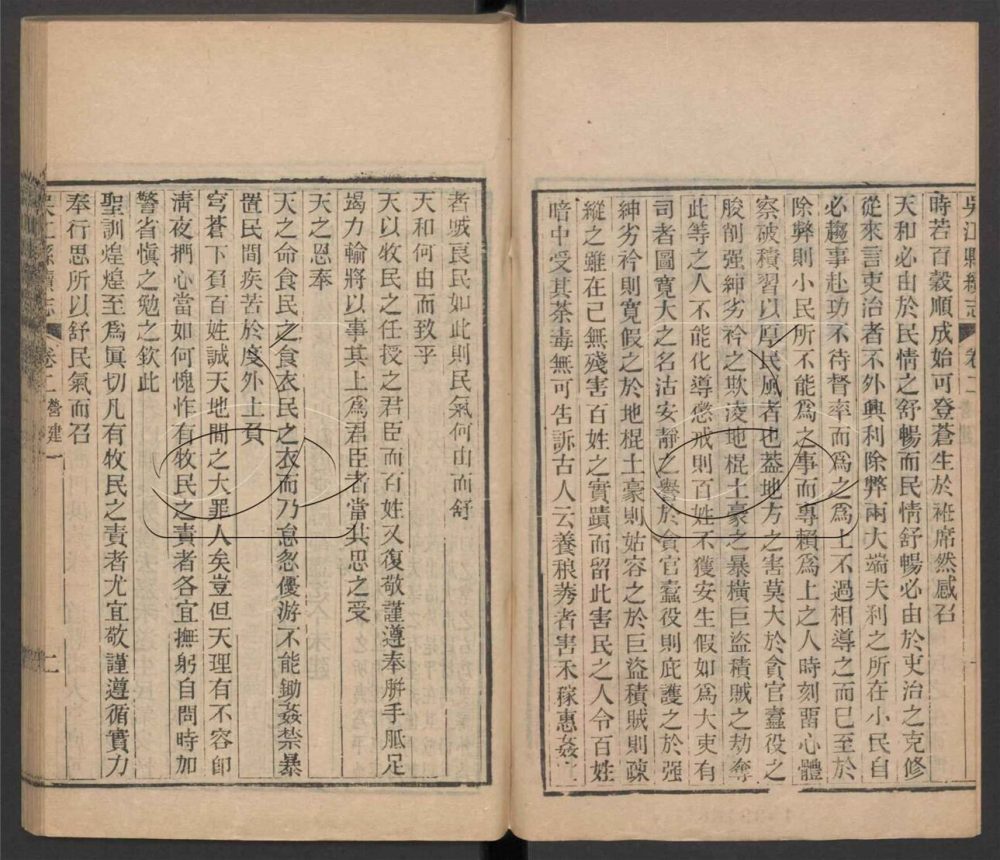 吳江縣續志 卷二
時若百穀順成始可登蒼生於袵席然感召
天和必由於民情之舒暢而民情舒暢必由於吏治之克修
從來言吏治者不外興利除弊兩大端夫利之所在小民自
必趨事赴功不待督率而爲之爲上不過相導之而已至於
除弊則小民所不能爲之事而專賴爲上之人時刻畱心體
察破積習以厚民風者也葢地方之害莫大於貪官蠹役之
朘削强紳劣衿之欺凌地棍土豪之暴橫巨盜積賊之劫奪
此等之人不能化導懲戒則百姓不獲安生假如爲大吏有
司者圖寬大之名沽安靜之譽於貪官蠹役則庇護之於强
紳劣衿則寬假之於地棍土豪則姑容之於巨盜積賊則疎
縱之雖在己無殘害百姓之實蹟而留此害民之人令百姓
暗中受其荼毒無可告訴古人云養稂莠者害禾稼惠姦
者戕良民如此則民氣何由而舒
天和何由而致乎
天以牧民之任授之君臣而百姓又復敬謹遵奉胼手胝足
竭力輸將以事其上爲君臣者當共思之受
天之恩奉
天之命食民之食衣民之衣而乃怠忽優游不能鋤姦禁暴
置民間疾苦於度外上負
穹蒼下負百姓誠天地間之大罪人矣豈但天理有不容卽
清夜捫心當如何愧怍有牧民之責者各宜撫躬自問時加
警省愼之勉之欽此
聖訓煌煌至爲眞切凡有牧民之責者尤宜敬謹遵循實力
奉行思所以舒民氣而召
吳江縣續志 卷二 營建一 二